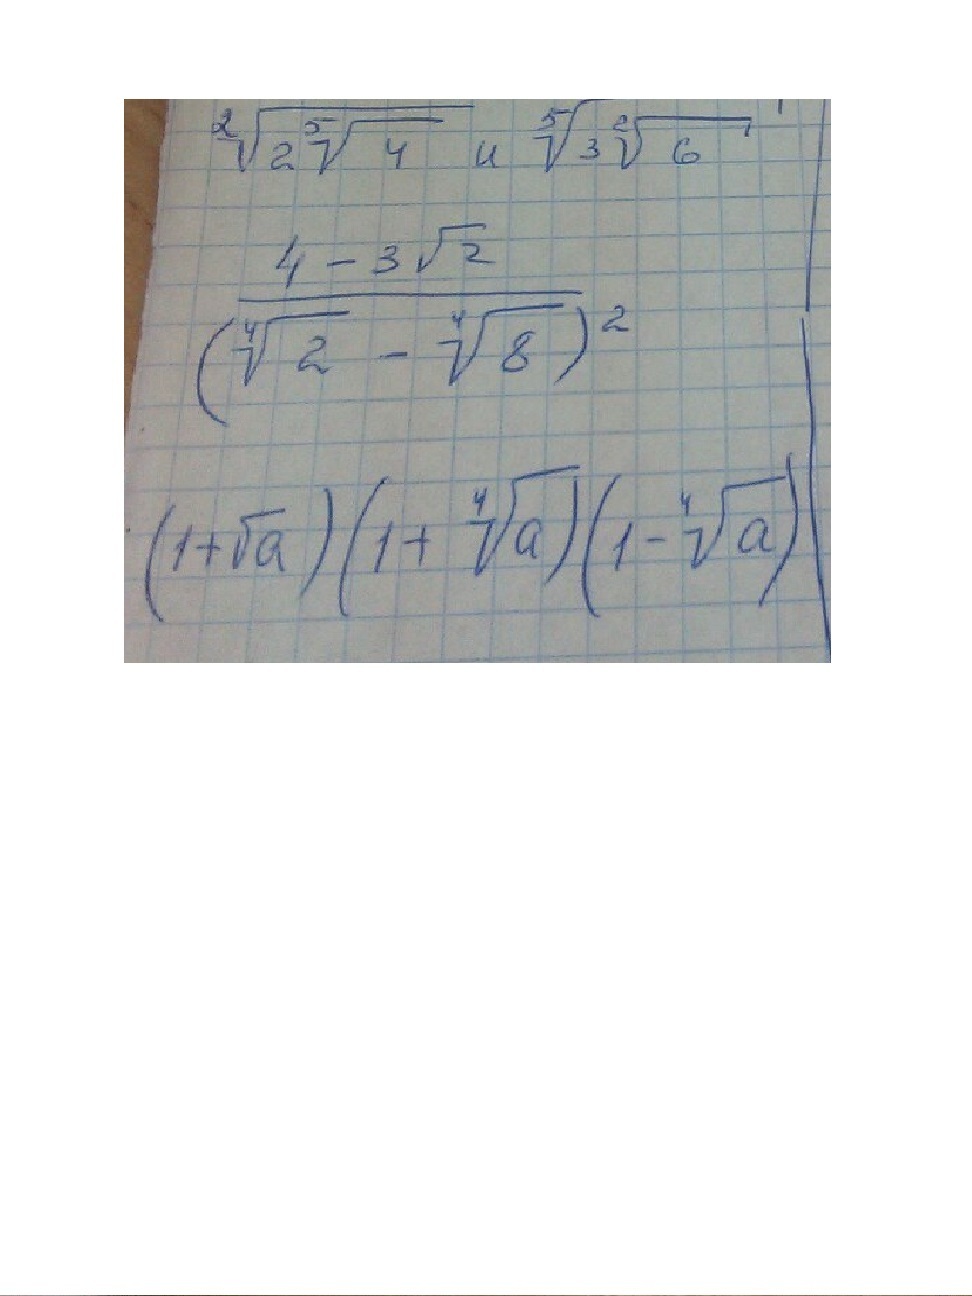 ²√2⁵√4 и ⁵√3²√6
4 - 3√2
(⁴√2 - ⁴√8)²
(1+√a)(1+⁴√a)(1-⁴√a)